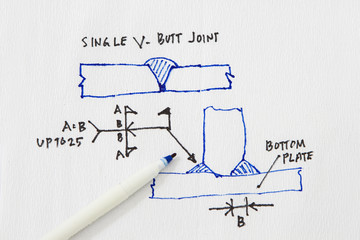 SINGLE V- BUTT JOINT
A
A=B
B
B
UP TO 25
A
BOTTOM
PLATE
B